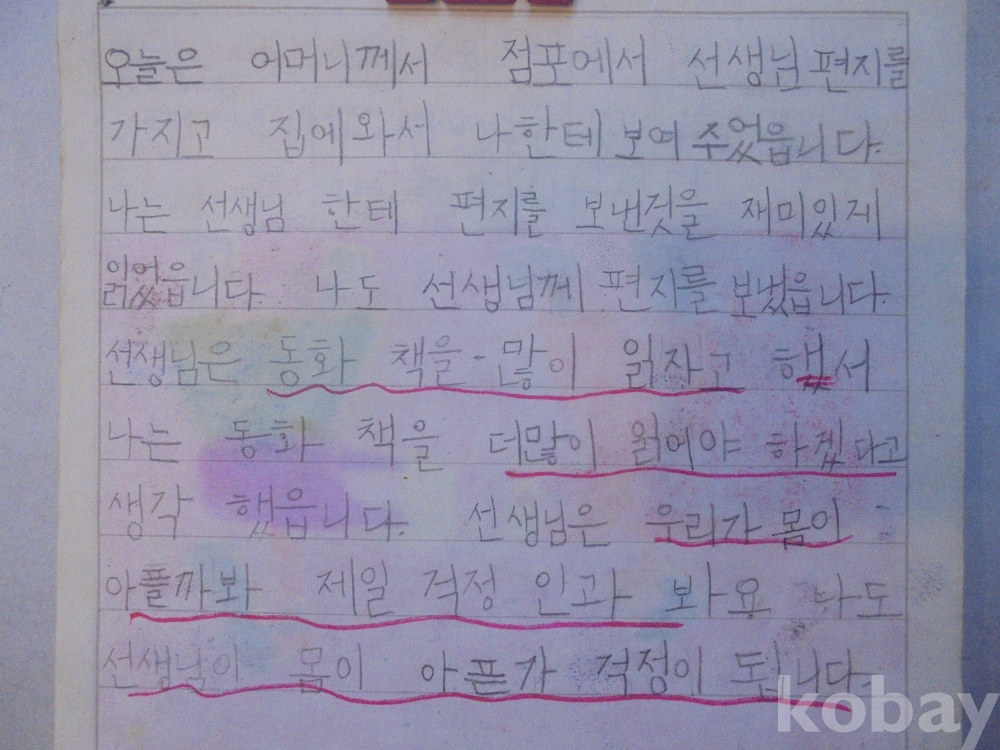 오늘은 어머니께서 점포에서 선생님 편지를
가지고 집에 와서 나한테 보여 주었읍니다.
나는 선생님 한테 편지를 보낸것을 재미있게
읽었읍니다. 나도 선생님께 편지를 보냈읍니다.
선생님은 동화 책을 많이 읽자고 했서
나는 동화 책을 더많이 읽어야 하겠다고
생각 했읍니다. 선생님은 우리가 몸이
아플까봐 제일 걱정 인과 봐요 나도
선생님이 몸이 아픈가 걱정이 됩니다.
kobay